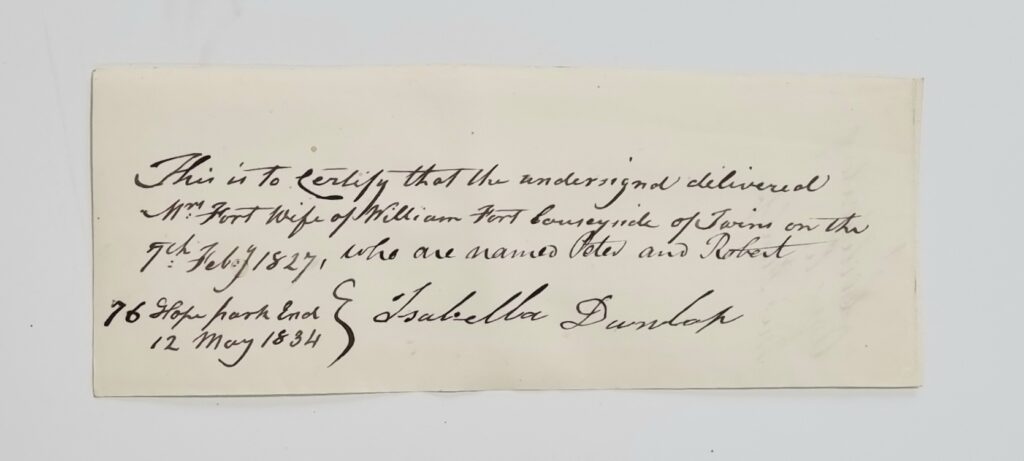 This is to Certify that the undersignd delivered
Mrs. Fort Wife of William Fort Causeyside of Twins on the
7th. Feby 1827, who are named Peter and Robert
76 Hope park End } Isabella Dunlop
12 May 1834